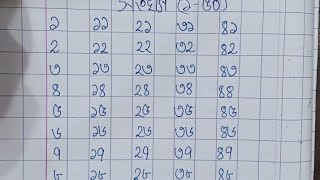 (১-৫০)
১ ১১ ২১ ৩১ ৪১
২ ১২ ২২ ৩২ ৪২
৩ ১৩ ২৩ ৩৩ ৪৩
৪ ১৪ ২৪ ৩৪ ৪৪
৫ ১৫ ২৫ ৩৫ ৪৫
৬ ১৬ ২৬ ৩৬ ৪৬
৭ ১৭ ২৭ ৩৭ ৪৭
৮ ১৮ ২৮ ৩৮ ৪৮